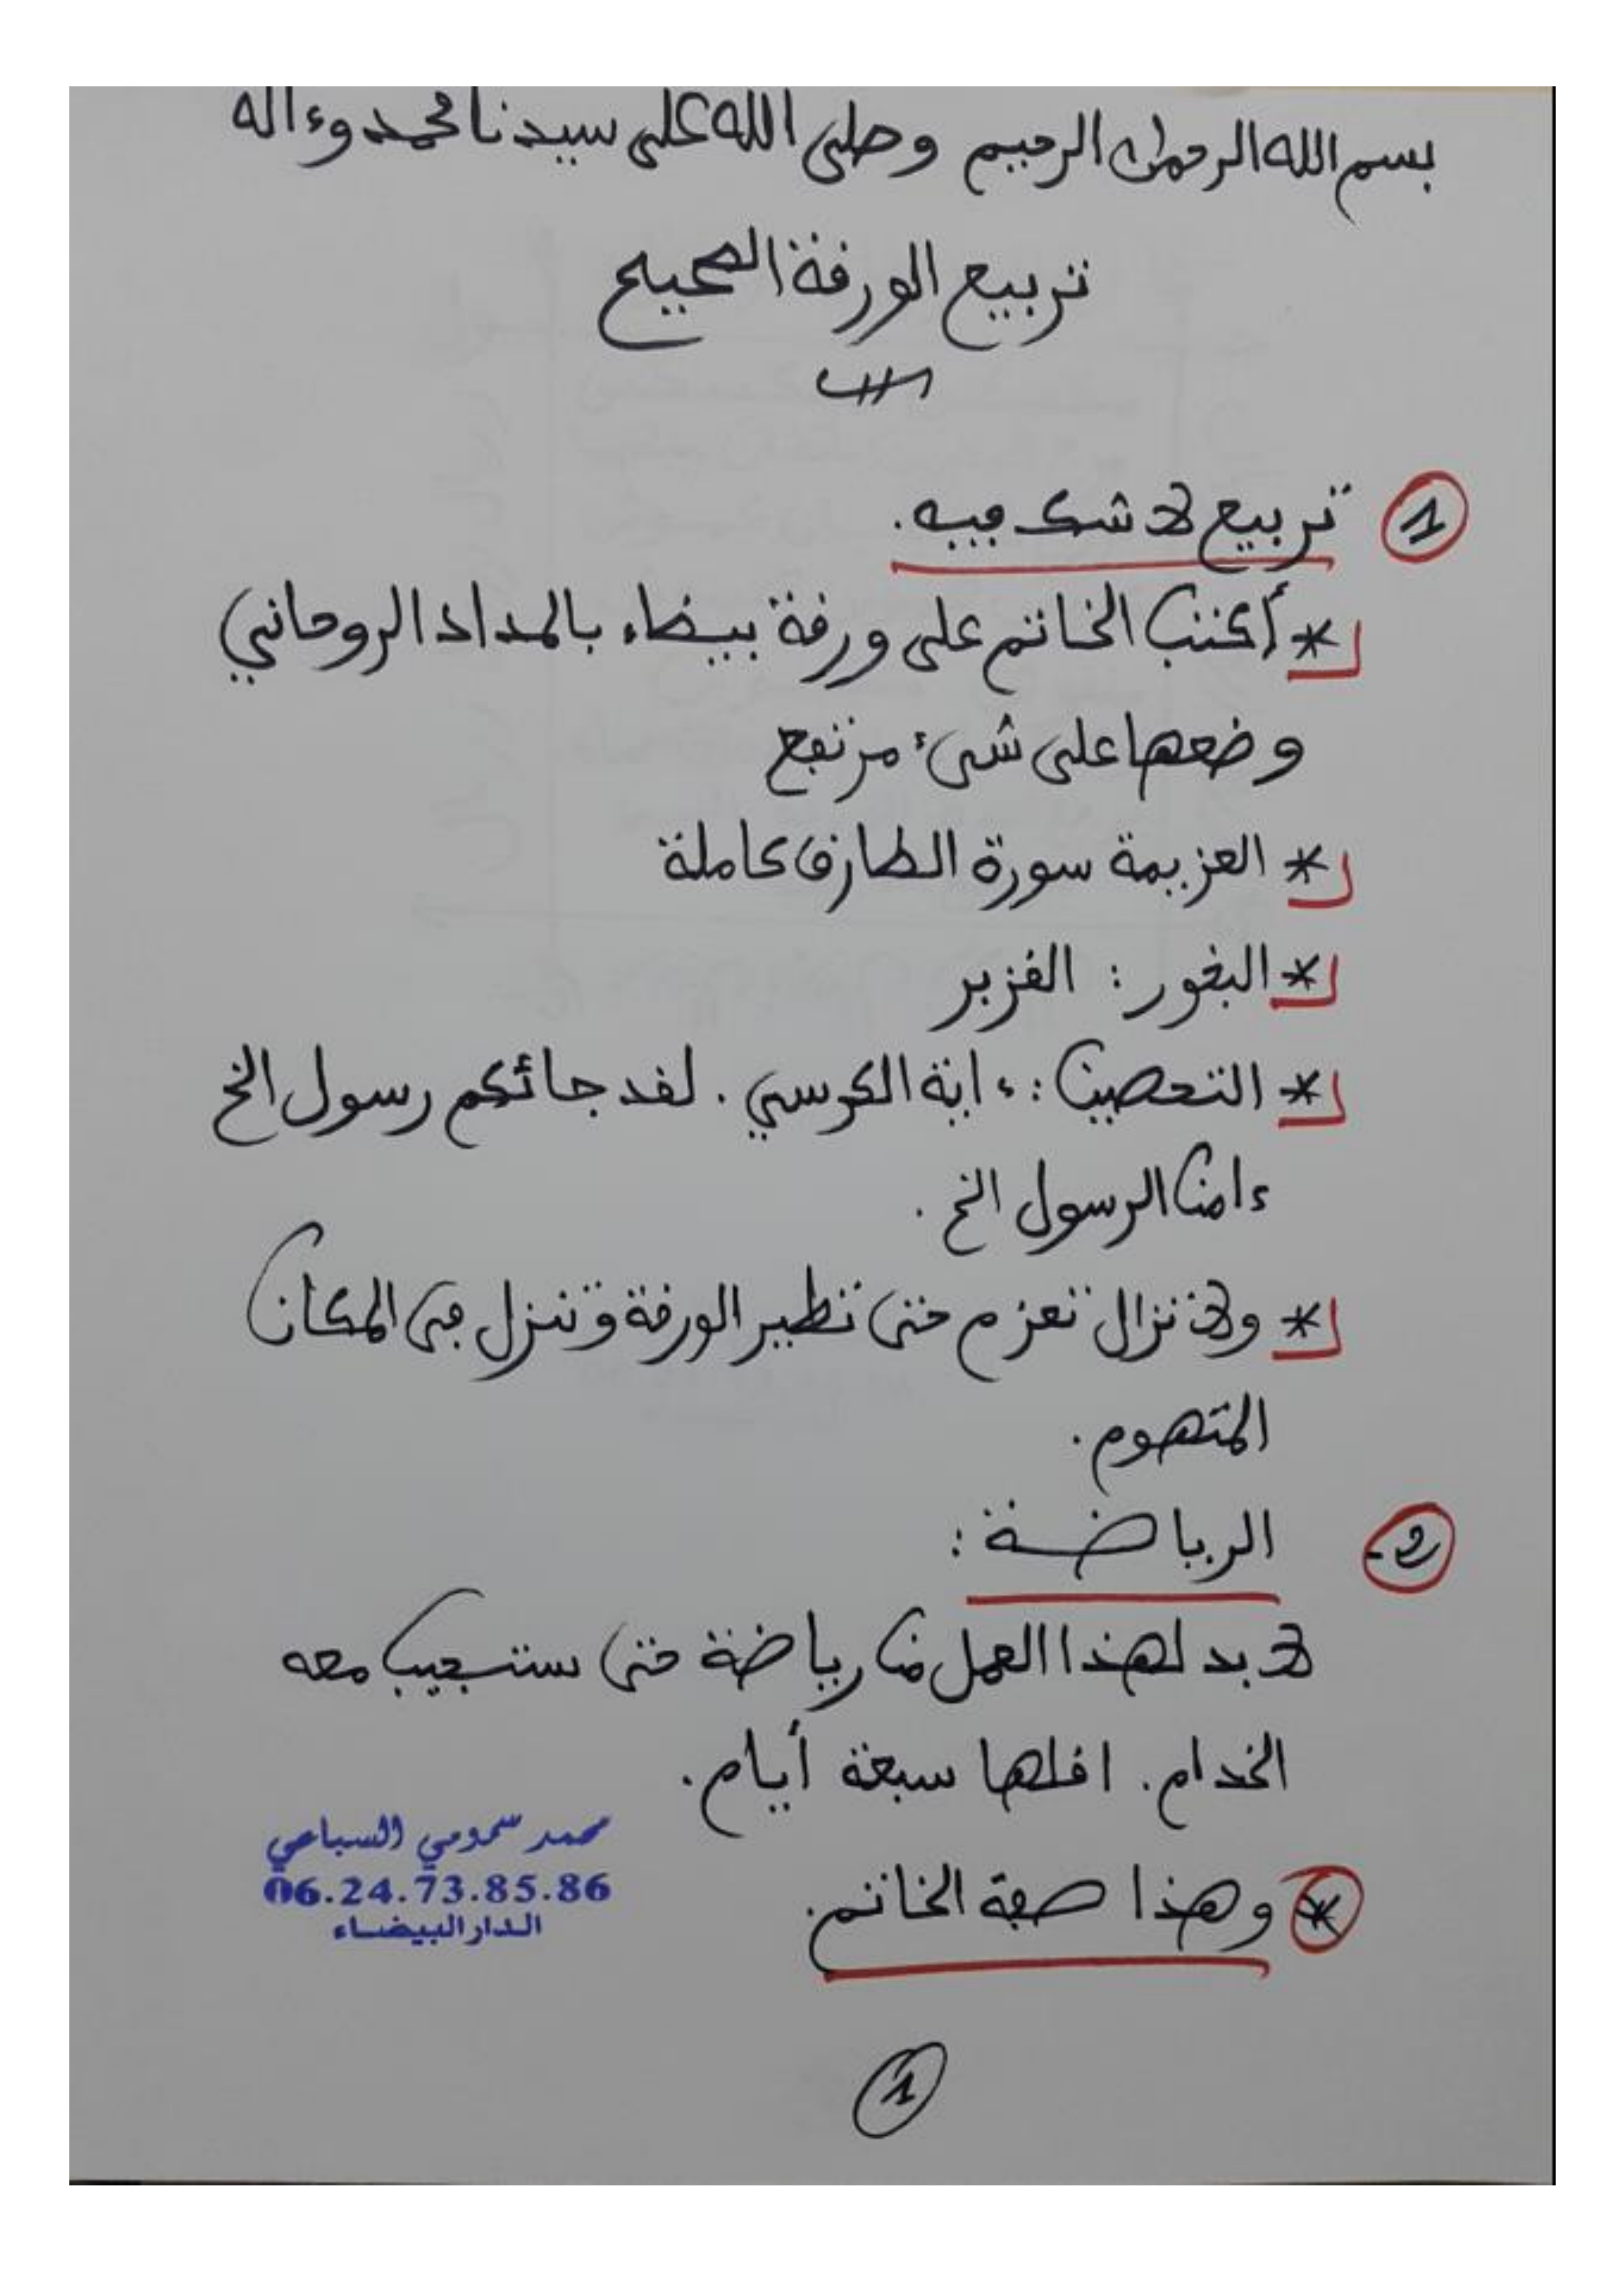 بسم الله الرحمان الرحيم وصلى الله على سيدنا محمد وءاله
تربيع الورقة الصحيح
1 تربيع لا شك فيه.
* أكتب الخاتم على ورقة بيضاء بالمداد الروحاني
وضعها على شيء مرتفع
* العزيمة سورة الطارق كاملة
* البخور: القزبر
* التحصين: ءاية الكرسي. لقد جائكم رسول الخ
ءامن الرسول الخ.
* ولا تزال تعزم حتى تطير الورقة وتنزل في المكان
المتهوم.
2- الرياضة:
لا بد لهذا العمل من رياضة حتى تستجيب معه
الخدام. اقلها سبعة أيام.
* وهذا صفة الخاتم.
محمد سمومي السباعي
06.24.73.85.86
الدار البيضاء
1